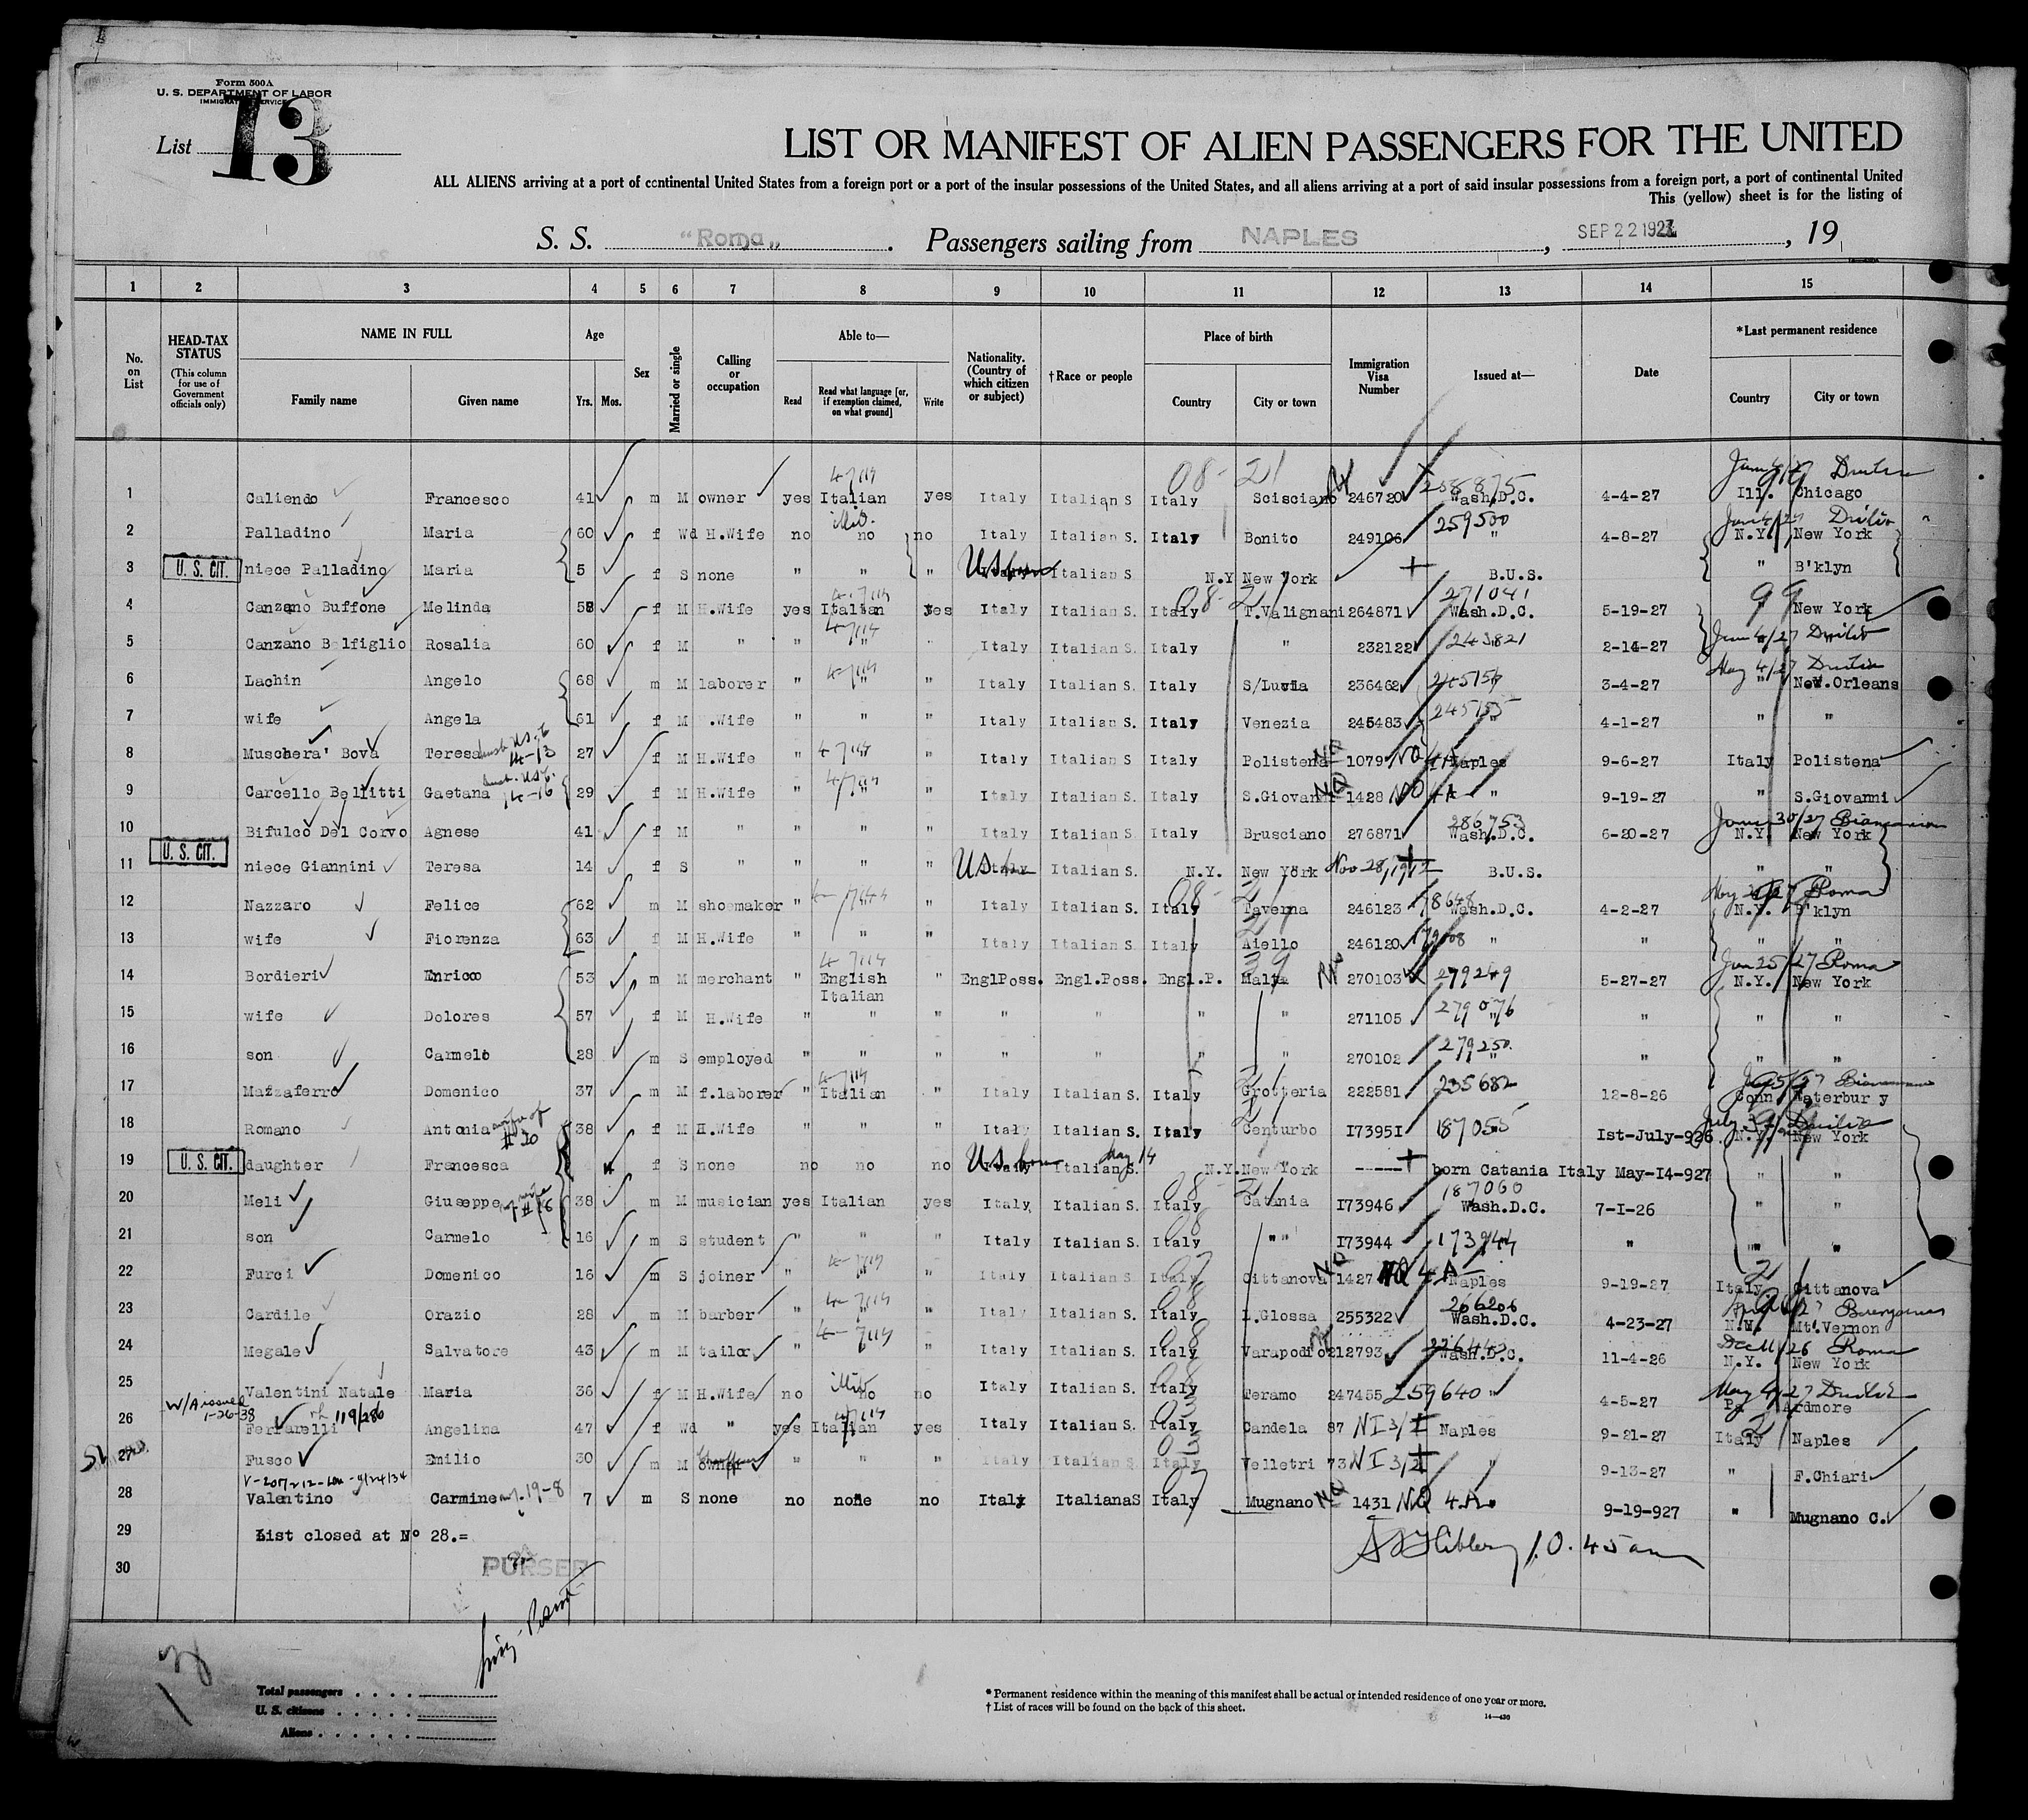 Form 500 A
U. S. DEPARTMENT OF LABOR
IMMIGRATION SERVICE
List 13
LIST OR MANIFEST OF ALIEN PASSENGERS FOR THE UNITED
ALL ALIENS arriving at a port of continental United States from a foreign port or a port of the insular possessions of the United States, and all aliens arriving at a port of said insular possessions from a foreign port, a port of continental United
This (yellow) sheet is for the listing of
S. S. "Roma" . Passengers sailing from NAPLES , SEP 22 1927 , 19
1 2 3 4 5 6 7 8 9 10 11 12 13 14 15
No. on List
HEAD-TAX STATUS (This column for use of Government officials only)
NAME IN FULL
Family name Given name
Age
Yrs. Mos.
Sex
Married or single
Calling or occupation
Able to—
Read Read what language [or, if exemption claimed, on what ground] Write
Nationality. (Country of which citizen or subject)
†Race or people
Place of birth
Country City or town
Immigration Visa Number
Issued at—
Date
*Last permanent residence
Country City or town
1 Caliendo Francesco 41 m M owner yes Italian yes Italy Italian S Italy Scisciano 246720 258875 Wash.D.C. 4-4-27 Ill. Chicago
2 Palladino Maria 60 f Wd H.Wife no no no Italy Italian S. Italy Bonito 249106 259500 " 4-8-27 N.Y. New York
3 U. S. CIT. niece Palladino Maria 5 f S none " " " US born Italian S N.Y New York B.U.S. " B'klyn
4 Canzano Buffone Melinda 58 f M H.Wife yes Italian yes Italy Italian S. Italy T.Valignani 264871 271041 Wash.D.C. 5-19-27 New York
5 Canzano Belfiglio Rosalia 60 f M " " " " Italy Italian S. Italy " 232122 243821 2-14-27
6 Lachin Angelo 68 m M laborer " " " Italy Italian S. Italy S/Lucia 236462 3-4-27 " New.Orleans
7 wife Angela 61 f M .Wife " " " Italy Italian S. Italy Venezia 245483 245155 4-1-27 " "
8 Muschera' Bova Teresa 27 f M H.Wife " " " Italy Italian S Italy Polistena 1079 NQ Naples 9-6-27 Italy Polistena
9 Carcello Bellitti Gaetana 29 f M H.Wife " " " Italy Italian S. Italy S.Giovanni 1428 NQ 4A " 9-19-27 " S.Giovanni
10 Bifulco Del Corvo Agnese 41 f M " " " " Italy Italian S. Italy Brusciano 276871 286753 Wash.D.C. 6-20-27 N.Y. New York
11 U. S. CIT. niece Giannini Teresa 14 f S " " " " US Italian S. N.Y. New York Nov 28, 1912 B.U.S. " "
12 Nazzaro Felice 62 m M shoemaker " " Italy Italian S. Italy Taverna 246123 178648 Wash.D.C. 4-2-27 N.Y. B'klyn
13 wife Fiorenza 63 f M H.Wife " " " Italy Italian S. Italy Aiello 246120 " " " "
14 Bordieri Enrico 53 m M merchant " English " EnglPoss. Engl.Poss. Engl.P. Malta 270103 279249 5-27-27 N.Y. New York
Italian
15 wife Dolores 57 f M H.Wife " " " " " " " 271105 279076 " " "
16 son Carmelo 28 m S employed " " " " " " " 270102 279250 " " "
17 Mazzaferro Domenico 37 m M f.laborer " Italian " Italy Italian S. Italy Grotteria 222581 235682 12-8-26 Conn Waterbury
18 Romano Antonia wife of #20 38 f M H.Wife " " " Italy Italian S. Italy Centurbo I7395I 187055 Ist-July-926. N.Y. New York
19 U. S. CIT. daughter Francesca f S none no no no US born Italian S. May 14 N.Y. New York born Catania Italy May-I4-927 " "
20 Meli Giuseppe 38 m M musician yes Italian yes Italy Italian S. Italy Catania I73946 187060 Wash.D.C. 7-I-26 " "
21 son Carmelo 16 m S student " " " Italy Italian S. Italy " " I73944 173944 " " "
22 Furci Domenico 16 m S joiner " " " Italy Italian S. Italy Cittanova 1427 NQ 4 A Naples 9-19-27 Italy Cittanova
23 Cardile Orazio 28 m M barber " " " Italy Italian S. Italy L.Glossa 255322 266206 Wash.D.C. 4-23-27 Mt.Vernon
24 Megale Salvatore 43 m M tailor " " " Italy Italian S. Italy Varapodio 212793 Wash.D.C. 11-4-26 N.Y. New York
25 Valentini Natale Maria 36 f M H.Wife no no no Italy Italian S. Italy Teramo 247455 259640 " 4-5-27 Pa Ardmore
W/A issued 1-26-38
26 Ferrarelli Angelina 47 f Wd " yes Italian yes Italy Italian S. Italy Candela 87 NI 3/I Naples 9-21-27 Italy Naples
27 Fusco Emilio 30 m M owner " " " Italy Italian S. Italy Velletri 73 NI 3,2 " 9-13-27 " F.Chiari
28 Valentino Carmine 7 m S none no none no Italy ItalianaS Italy Mugnano 1431 NQ 4 A " 9-19-927 " Mugnano C.
29 List closed at N° 28.=
30
PURSER
10.45 am
Total passengers
U. S. citizens
Aliens
* Permanent residence within the meaning of this manifest shall be actual or intended residence of one year or more.
† List of races will be found on the back of this sheet.
14—430